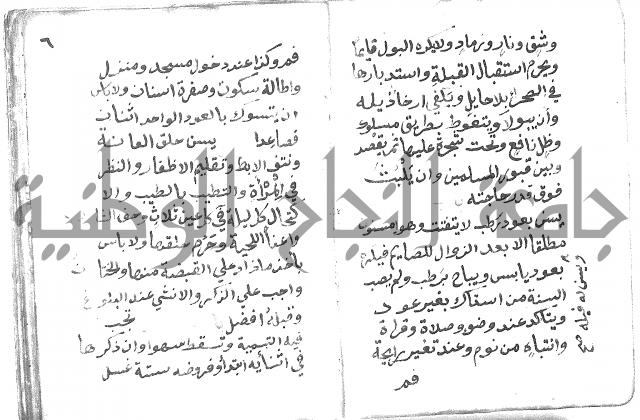 وشق ونار ورماد ولا يكره البول قايما
ويحرم استقبال القبلة واستدبارها
في الصحرا بلا حايل ويكفي ارخا ذيله
وان يبول او يتغوط بطريق مسلوك
وظل نافع وتحت شجرة عليها ثمر يقصد
وبين قبور المسلمين وان يلبث
فوق قدر حاجته
يسن بعود رطب لا يتفتت وهو مسنون
مطلقا الا بعد الزوال للصايم قبله
بعود يابس ويباح برطب ولم يصب
السنة من استاك بغير عود
ويتأكد عند وضوء وصلاة وقراة
وانتباه من نوم وعند تغير رايحة
فم
ويسن له قبله صح
٦
فم وكذا عند دخول مسجد ومنزل
واطالة سكوت وصفرة اسنان ولا باس
ان يتسوك بالعود الواحد اثنان
فصاعدا يسن حلق العانة
ونتف الابط وتقليم الاظفار والنظر
في المرأة والتطيب بالطيب والا
كتحال كل ليلة في كل عين ثلاث وحف الشارب
واعفا اللحية وحرم حلقها ولا باس
باخذ ما زاد على القبضة منها والختان
واجب على الذكر والانثى عند البلوغ
وقبله افضل تجب
فيه التسمية وتسقط سهوا وان ذكرها
في اثنايه ابتدأ وفروضه ستة غسل
جامعة النجاح الوطنية